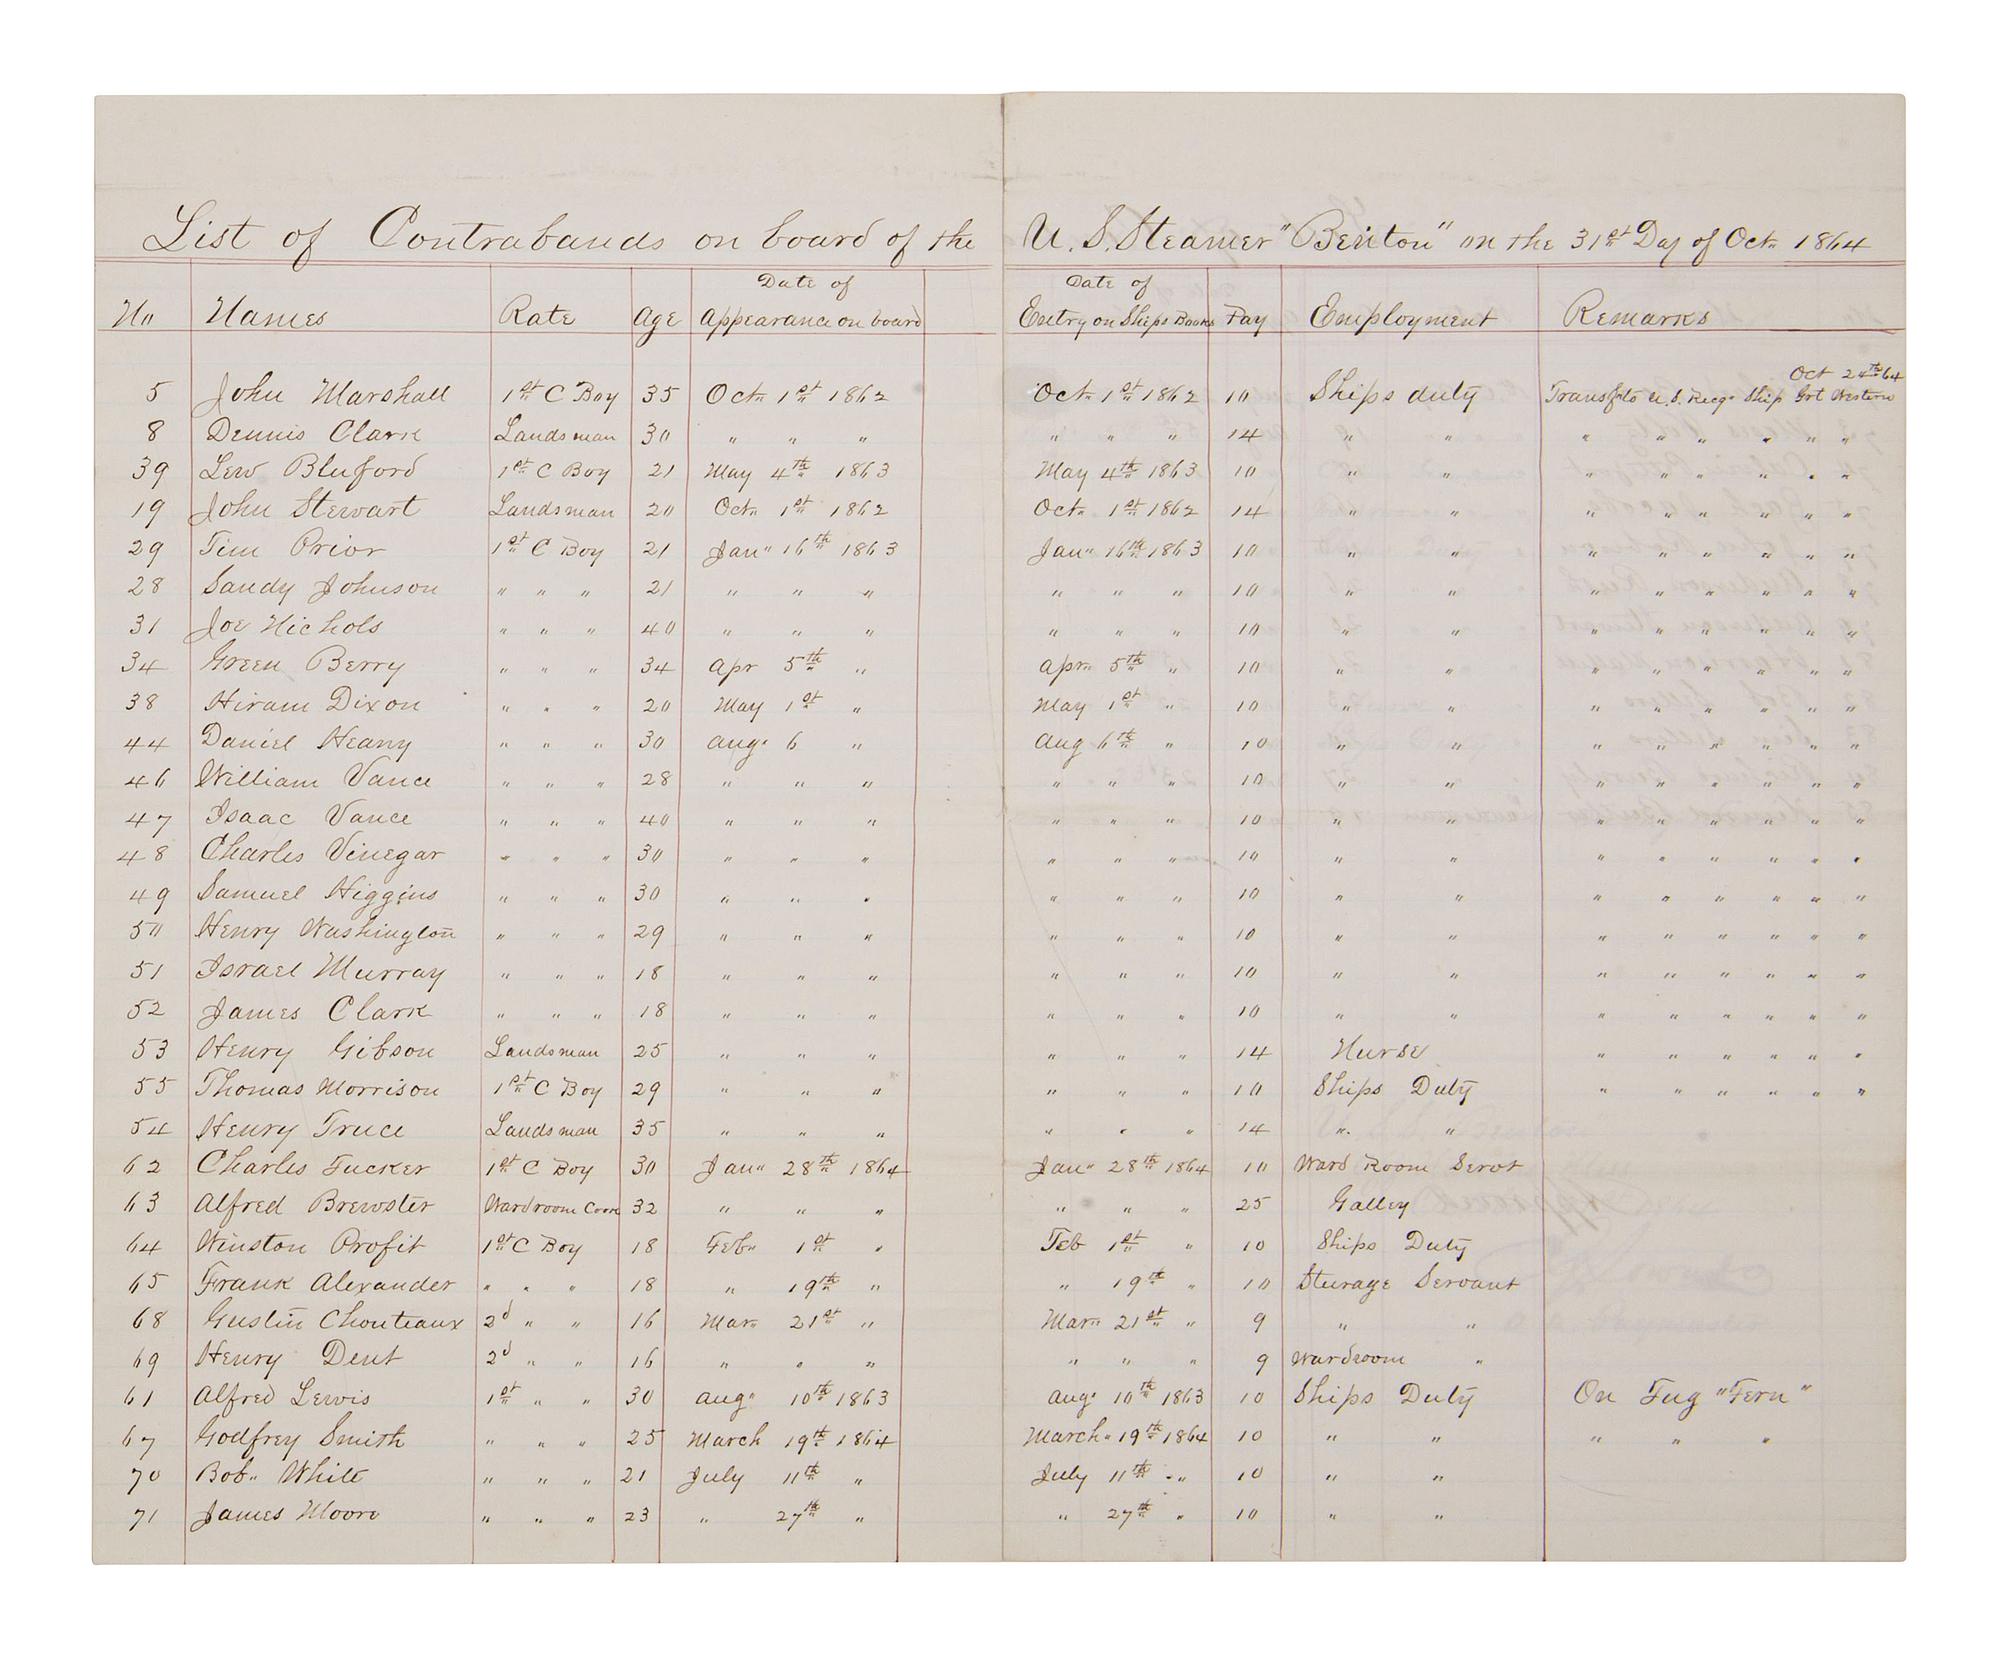 List of Contrabands on board of the U. S. Steamer "Benton" on the 31st Day of Octr 1864
No Names Rate Age Date of Appearance on board Date of Entry on Ships Books Pay Employment Remarks
5 John Marshall 1st C Boy 35 Octr 1st 1862 Octr 1st 1862 10 Ships duty Transf'd to U. S. Recg Ship Grt Western Oct 24th 64
8 Dennis Clark Landsman 30 " " " " " " 14 " " " " " " " "
39 Lew Bluford 1st C Boy 21 May 4th 1863 May 4th 1863 10 " " " " " " " "
19 John Stewart Landsman 20 Octr 1st 1862 Octr 1st 1862 14 " " " " " " " "
29 Tim Prior 1st C Boy 21 Jany 16th 1863 Jany 16th 1863 10 " " " " " " " "
28 Sandy Johnson " " " 21 " " " " " " 10 " " " " " " " "
31 Joe Nichols " " " 40 " " " " " " 10 " " " " " " " "
34 Green Berry " " " 34 Apr 5th " Apr 5th " 10 " " " " " " " "
38 Hiram Dixon " " " 20 May 1st " May 1st " 10 " " " " " " " "
44 Daniel Heany " " " 30 Aug 6 " Aug 6th " 10 " " " " " " " "
46 William Vance " " " 28 " " " " " " 10 " " " " " " " "
47 Isaac Vance " " " 40 " " " " " " 10 " " " " " " " "
48 Charles Vinegar " " " 30 " " " " " " 10 " " " " " " " "
49 Samuel Higgins " " " 30 " " " " " " 10 " " " " " " " "
50 Henry Washington " " " 29 " " " " " " 10 " " " " " " " "
51 Israel Murray " " " 18 " " " " " " 10 " " " " " " " "
52 James Clark " " " 18 " " " " " " 10 " " " " " " " "
53 Henry Gibson Landsman 25 " " " " " " 14 Nurse " " " " " "
55 Thomas Morrison 1st C Boy 29 " " " " " " 10 Ships Duty " " " " " "
54 Henry Truce Landsman 35 " " " " " " 14 " "
62 Charles Tucker 1st C Boy 30 Jany 28th 1864 Jany 28th 1864 10 Ward Room Servt
63 Alfred Brewster Wardroom Cook 32 " " " " " " 25 Galley
64 Winston Profit 1st C Boy 18 Feb 1st " Feb 1st " 10 Ships Duty
65 Frank Alexander " " " 18 " 19th " " 19th " 10 Sturage Servant
68 Gustin Chouteaux 2d " " 16 Mar 21st " Mar 21st " 9 " "
69 Henry Dent 2d " " 16 " " " " " " 9 Wardroom "
61 Alfred Lewis 1st " " 30 Aug 10th 1863 Aug 10th 1863 10 Ships Duty On Tug "Fern"
67 Godfrey Smith " " " 25 March 19th 1864 March 19th 1864 10 " " " " "
70 Bob White " " " 21 July 11th " July 11th " 10 " "
71 James Moore " " " 23 " 27th " " 27th " 10 " "